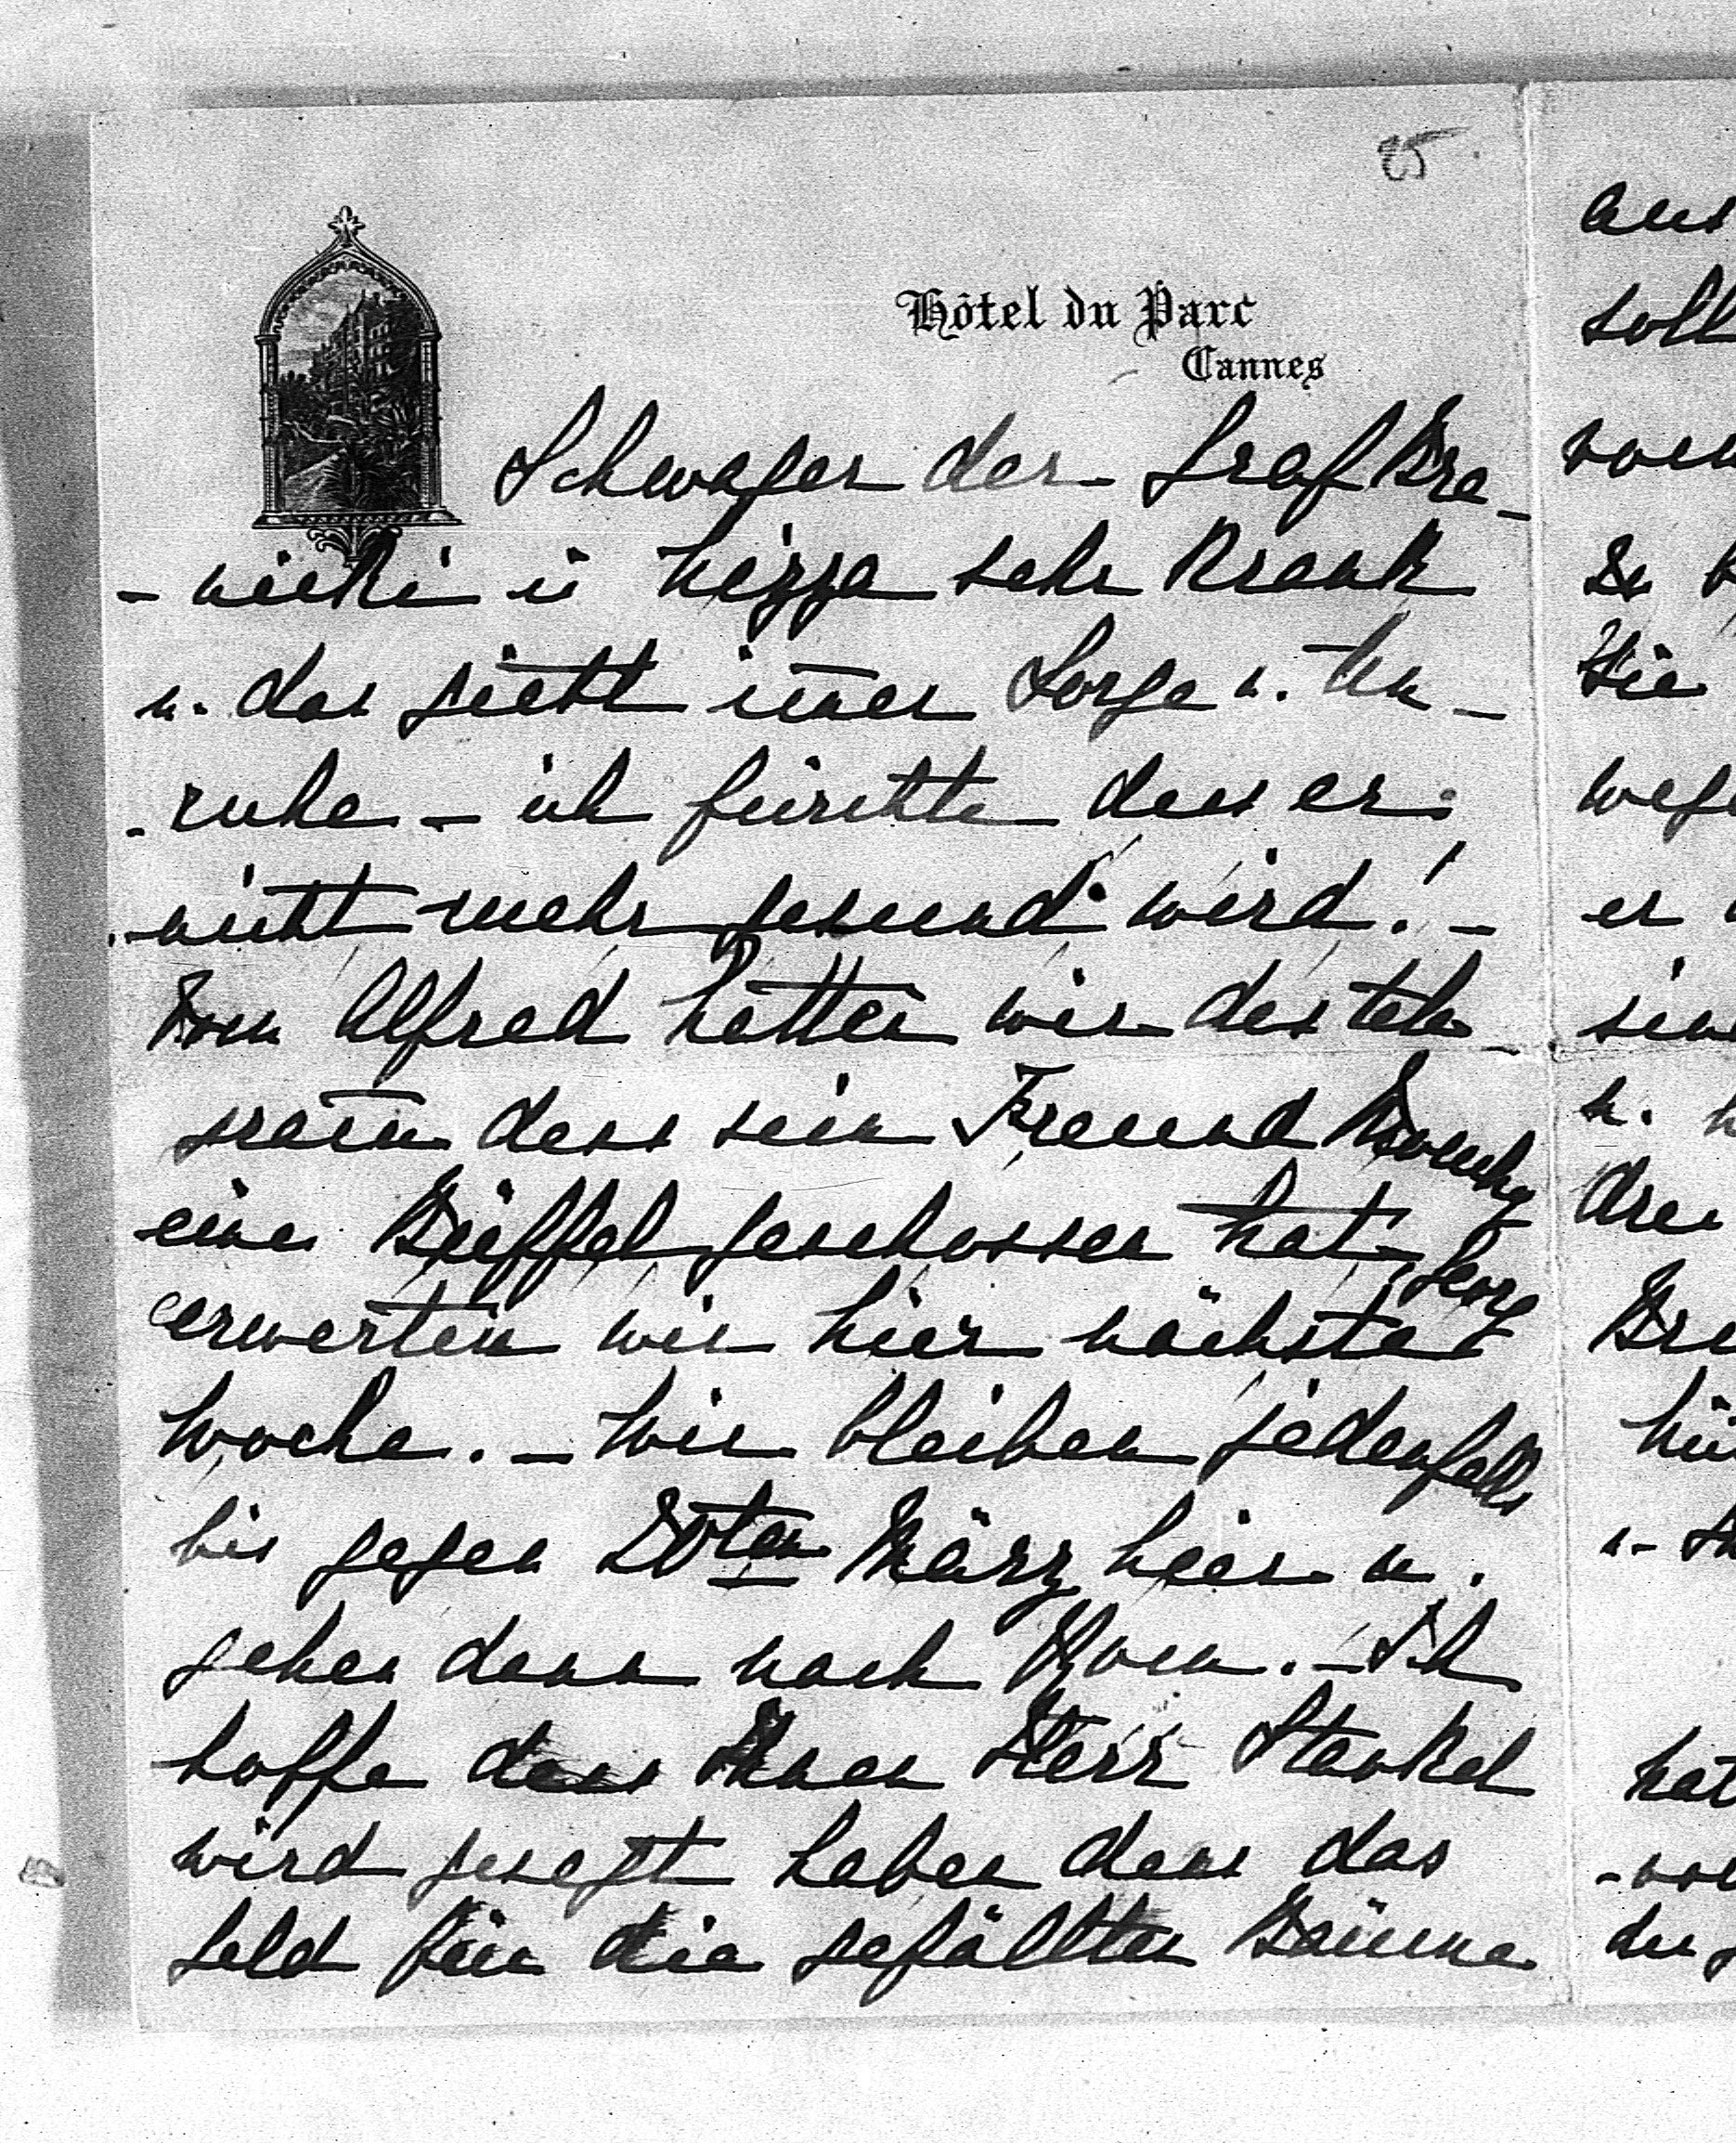 85.
Hôtel du Parc
Cannes
Schwager der Graf Bra-
-nicki in Nizza sehr krank
u. das giebt immer Sorge u. Un-
-ruhe – ich fürchte dass er
nicht mehr gesund wird! –
Von Alfred hatten wir das tele
gramm dass sein Freund
einen Büffel geschossen hat. Georg
erwarten wir hier nächste
Woche. – Wir bleiben jedenfalls
bis gegen 20ten März hier u.
gehen dann nach Rom. – Ich
hoffe dass Ihnen Herr
wird gesagt haben dass das
Geld für die gefällten Bäume
aus
soll
Sie
wege
er
u.
hat